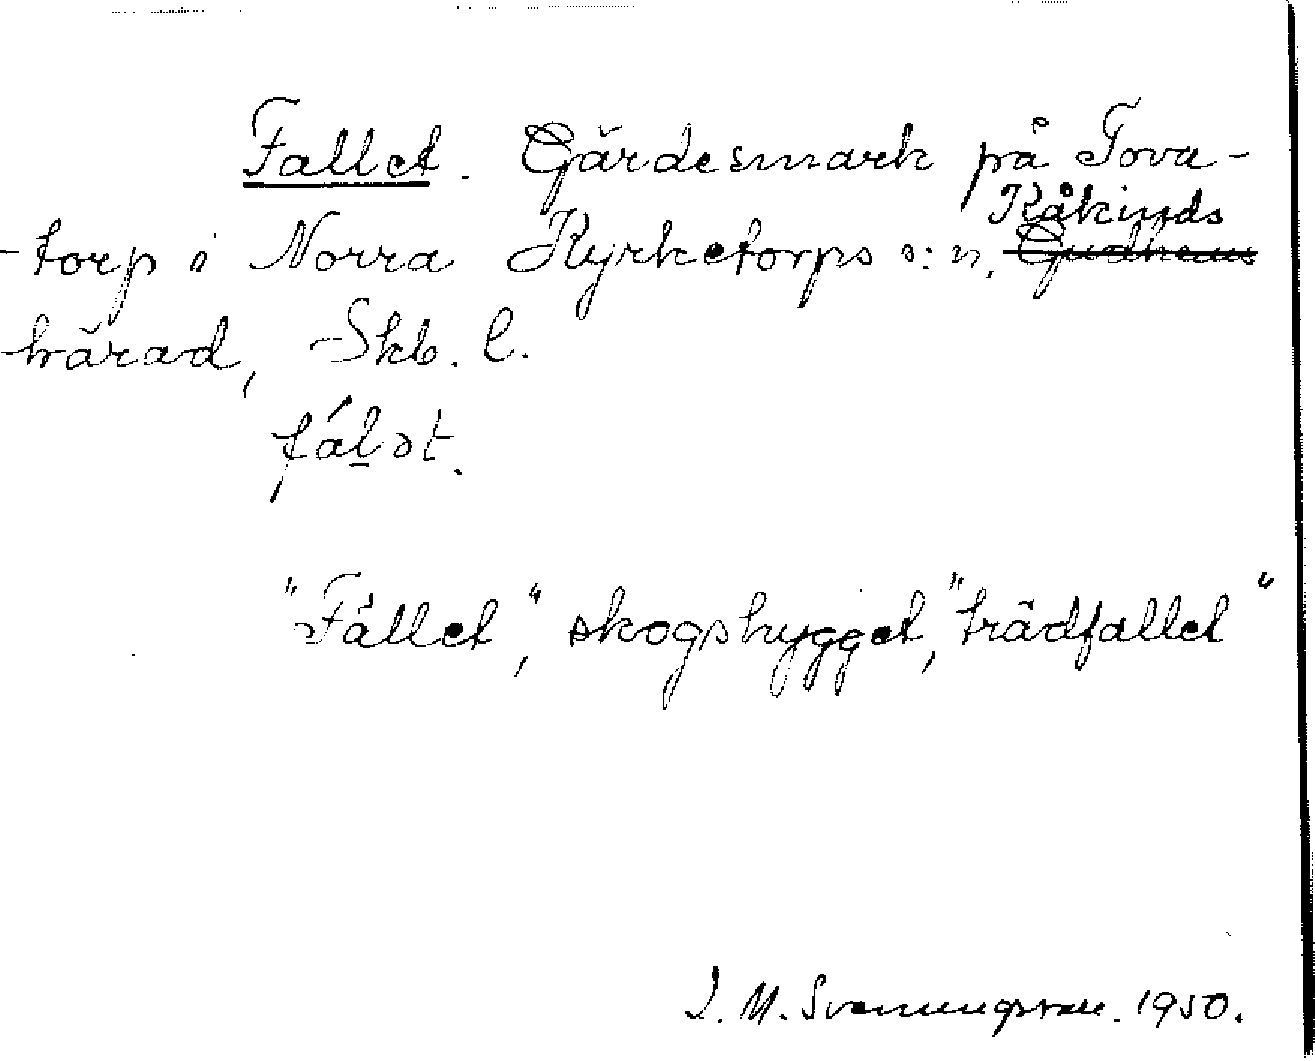 Fallet. Gärdesmark på Tova-
-torp i Norra Kyrketorps s:n, Kåkinds Gudhems
härad, Skb. l.
fál̲ət.
"Fället", skogshygget, "trädfallet"
J. M. Svenungsson. 1950.